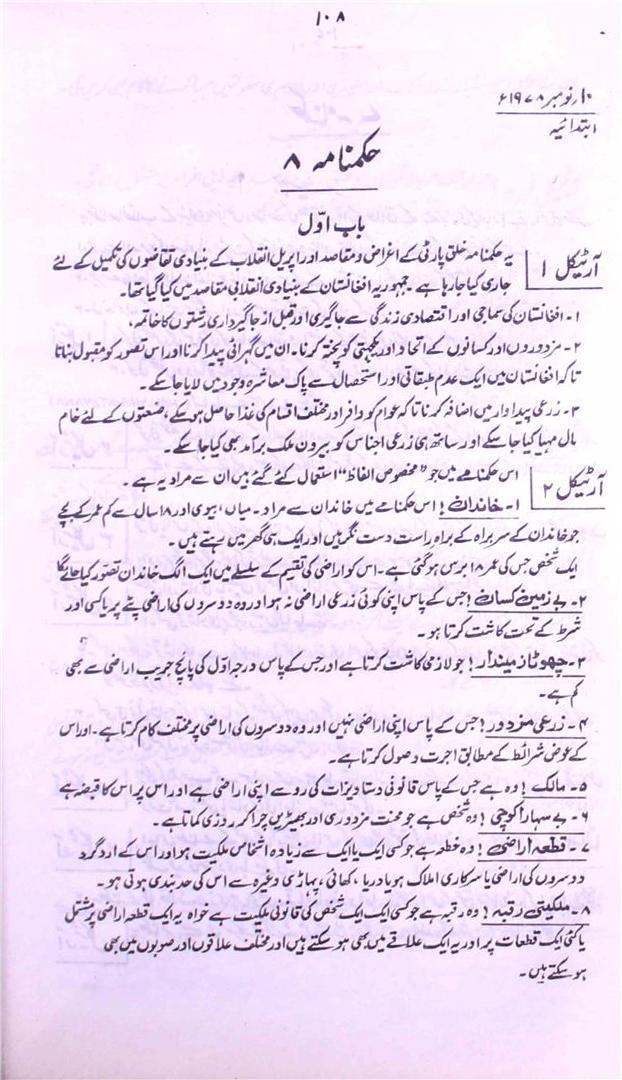 ۱۰۸
۱۰ر نومبر ۱۹۷۸ء
ابتدائیہ
حکمنامہ ۸
باب اوّل
آرٹیکل ۱
یہ حکمنامہ خلقی پارٹی کے اغراض و مقاصد اور اپریل انقلاب کے بنیادی تقاضوں کی تکمیل کے لئے
جاری کیا جارہا ہے ۔ جمہوریہ افغانستان کے بنیادی انقلابی مقاصد میں کہا گیا تھا۔
۱۔ افغانستان کی سماجی اور اقتصادی زندگی سے جاگیری اور قبل از جاگیرداری رشتوں کا خاتمہ،
۲۔ مزدوروں اور کسانوں کے اتحاد اور یکجہتی کو پختہ کرنا۔ ان میں گہرائی پیدا کرنا اور اس تصور کو مقبول بنانا
تاکہ افغانستان میں ایک عدم طبقاتی اور استحصال سے پاک معاشرہ وجود میں لایا جاسکے۔
۳۔ زرعی پیداوار میں اضافہ کرنا تاکہ عوام کو وافر اور مختلف اقسام کی غذا حاصل ہوسکے، صنعتوں کے لئے خام
مال مہیا کیا جاسکے اور ساتھ ہی زرعی اجناس کو بیرون ملک برآمد بھی کیا جاسکے۔
آرٹیکل ۲
اس حکمنامے میں جو ”مخصوص الفاظ“ استعمال کئے گئے ہیں ان سے مراد یہ ہے ۔
۱۔ خاندان ! اس حکمنامے میں خاندان سے مراد۔ میاں، بیوی اور ۱۸ سال سے کم عمر کے بچے
جو خاندان کے سربراہ کے براہ راست دست نگر ہیں اور ایک ہی گھر میں رہتے ہیں۔
ایک شخص جس کی عمر ۱۸ برس ہوگئی ہے۔ اس کو اراضی کی تقیم کے سلسلے میں ایک الگ خاندان تصوّر کیا جائے گا
۲۔ بے زمین کسان ! جس کے پاس اپنی کوئی زرعی اراضی نہ ہو اور وہ دوسروں کی اراضی پٹے پر یا کسی اور
شرط کے تحت کاشت کرتا ہو۔
۳۔ چھوٹا زمیندار ! جو لازمی کاشت کرتا ہے اور جس کے پاس درجہ اوّل کی پانچ جریب اراضی سے بھی
کم ہے۔
۴۔ زرعی مزدور ! جس کے پاس اپنی اراضی نہیں اور وہ دوسروں کی اراضی پر مختلف کام کرتا ہے۔ اور اس
کے عوض شرائط کے مطابق اجرت وصول کرتا ہے۔
۵۔ مالک ! وہ ہے جس کے پاس قانونی دستاویزات کی رو سے اپنی اراضی ہے اور اس پر اس کا قبضہ ہے
۶۔ بے سہارا کوچی ! وہ شخص ہے جو محنت مزدوری اور بھیڑیں چرا کر روزی کماتا ہے۔
۷۔ قطعہ اراضی ! وہ خطہ ہے جو کسی ایک یا ایک سے زیادہ اشخاص ملکیت ہو اور اس کے ارد گرد
دوسروں کی اراضی یا سرکاری املاک ہو یا دریا ، کھائی ، پہاڑی وغیرہ سے اس کی حد بندی ہوتی ہو۔
۸۔ ملکیتی رقبہ ! وہ رقبہ ہے جو کسی ایک ایک شخص کی قانونی ملکیت ہے خواہ یہ ایک قطعہ اراضی پر مشتمل
یا کئی ایک قطعات پر اور یہ ایک علاقے میں بھی ہوسکتے ہیں اور مختلف علاقوں اور صوبوں میں بھی
ہوسکتے ہیں ۔